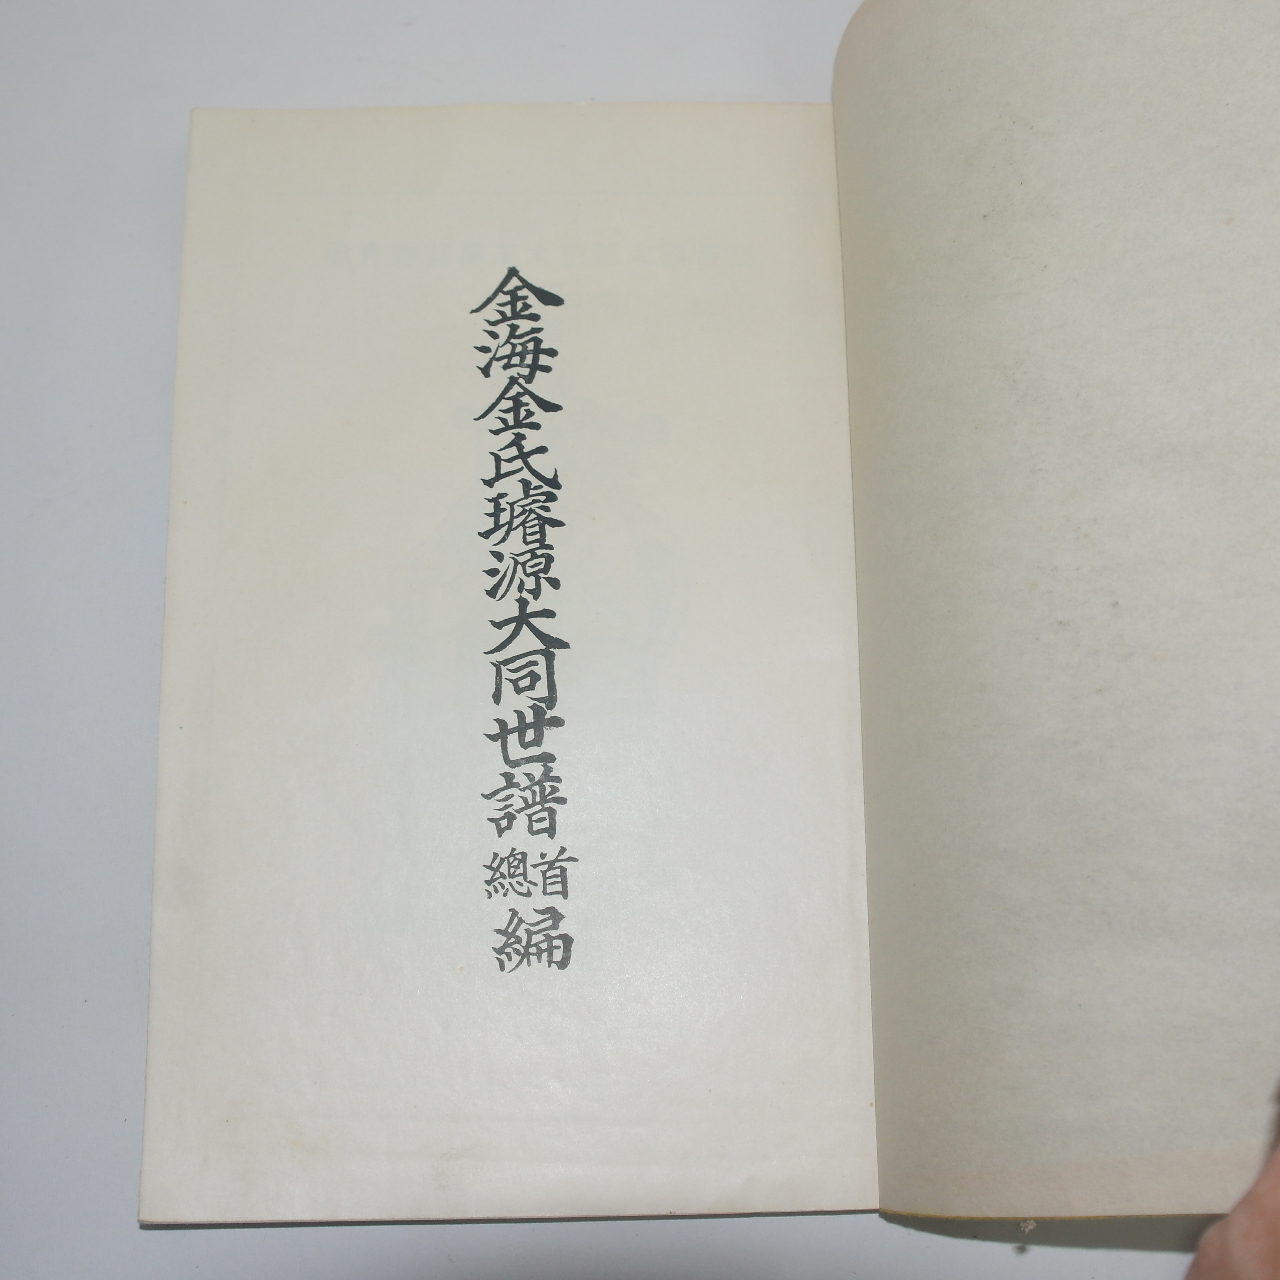 金海金氏璿源大同世譜首總編